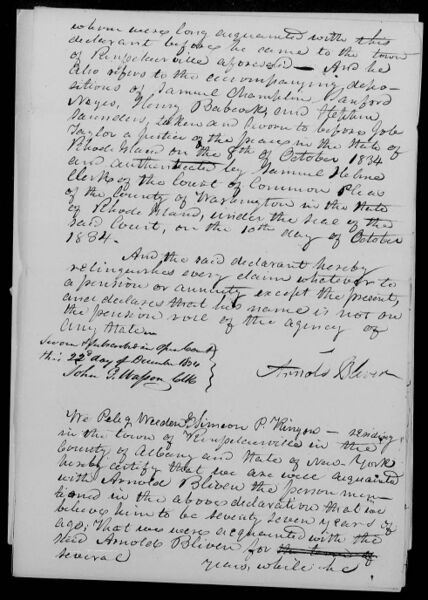 whom were long acquainted with this
declarant before he came to the town
of Rensselaerville aforesaid — And he
also refers to the accompanying depo-
sitions of Samuel Champlin, Sanford
Noyes, Henry Babcock, and Stephen
Saunders, taken and sworn to before Job
Taylor a Justice of the peace in the State of
Rhode Island on the 8th of October 1834
and authenticated by Samuel Helme
Clerk of the Court of Common Pleas
of the County of Washington in the State
of Rhode Island, under the seal of the
said Court, on the 10th day of October
1834.
And the said declarant hereby
relinquishes every claim whatever to
a pension or annuity except the present,
and declares that his name is not on
the pension role of the agency of
any State.
Sworn & subscribed in open Court
this 22d day of December 1834
John G. Wasson Clk
Arnold Bliven
We Peleg Weeden & Simeon P. Kinyon — residing
in the town of Rensselaerville in the
County of Albany and State of New-York
hereby certify that we are well acquainted
with Arnold Bliven the person men-
tioned in the above declaration that we
believe him to be seventy seven years of
age; That we were acquainted with the
said Arnold Bliven for
several years, while he